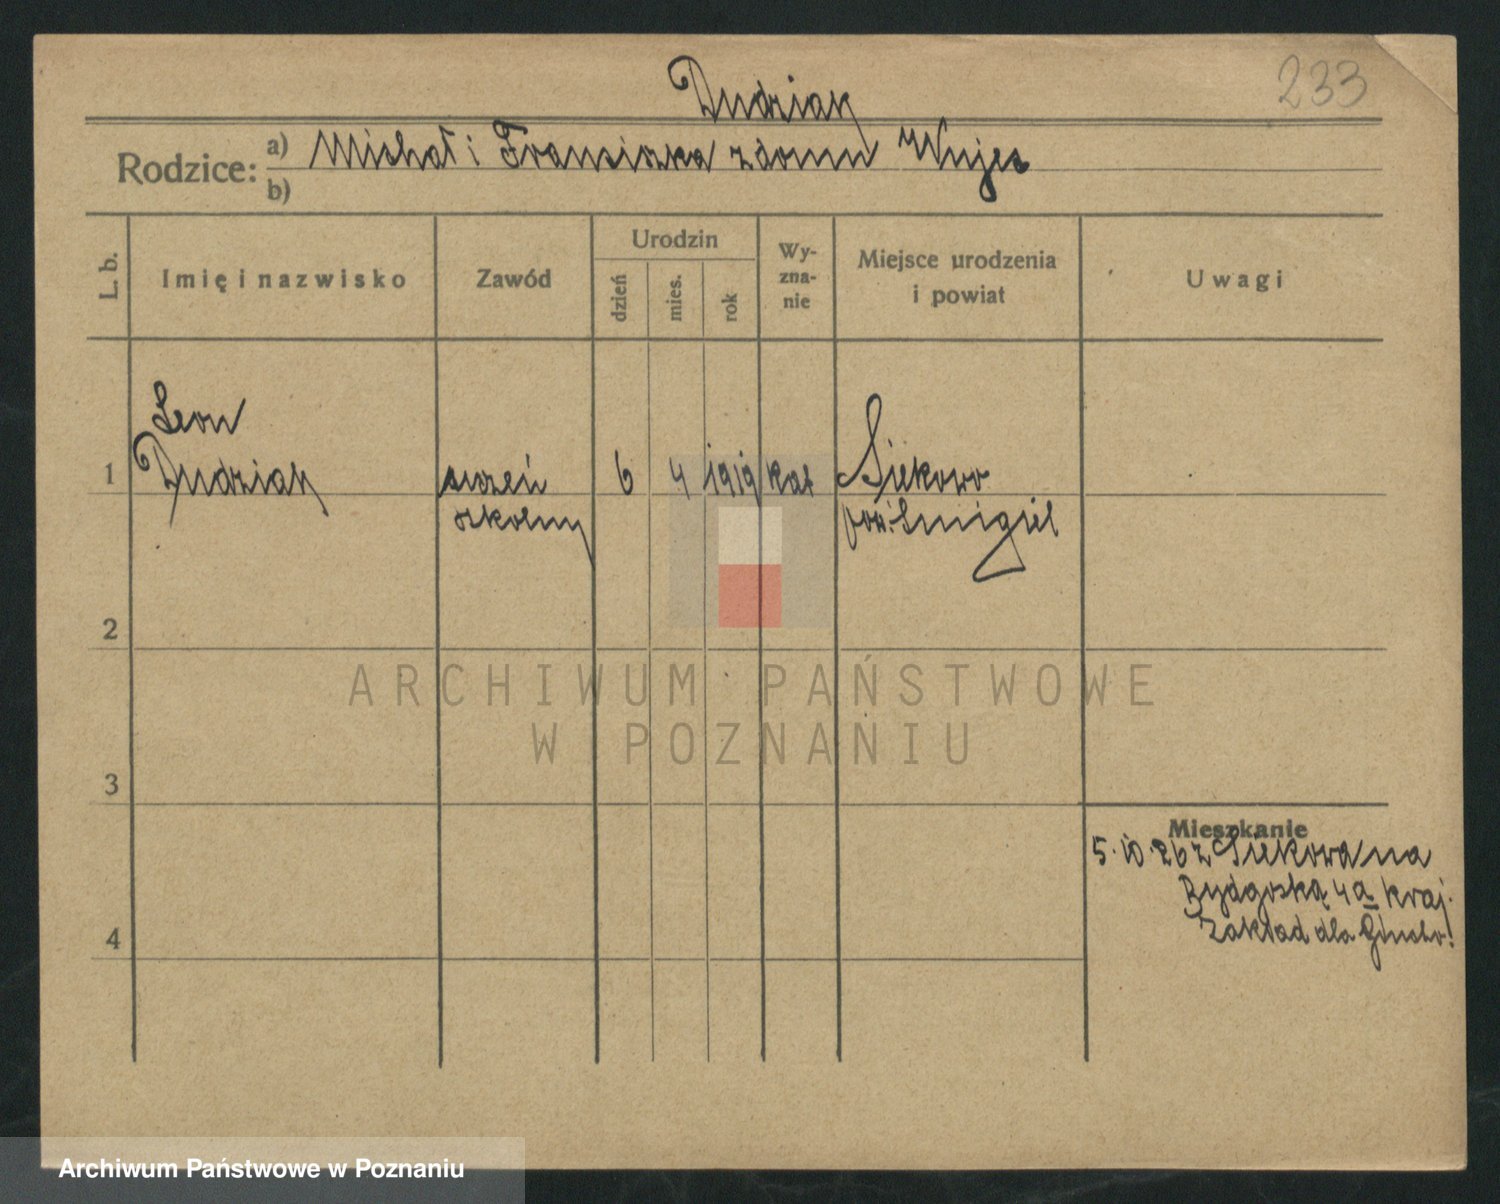 233
Dudziak
Rodzice: a) Michał i Franciszka z domu Wujec
b)
L. b.
Imię i nazwisko
Zawód
Urodzin
dzień
mies.
rok
Wy-
zna-
nie
Miejsce urodzenia
i powiat
Uwagi
1
Leon
Dudziak
uczeń
szkolny
6 4 1919 kat
Siekowo
pow. Śmigiel
2
3
4
Mieszkanie
5.10.26 z Siekowa na
Bydgoską 4a kraj.
Zakład dla Głucho.
ARCHIWUM PAŃSTWOWE
W POZNANIU
Archiwum Państwowe w Poznaniu